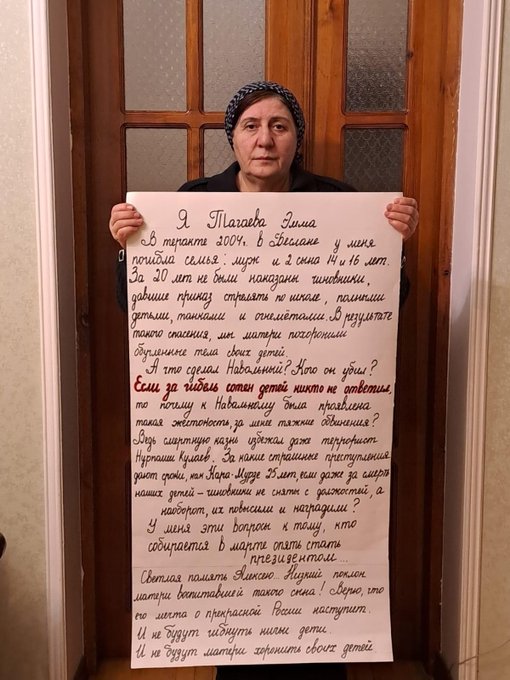 Я Тагаева Эмма
В теракте 2004г. в Беслане у меня
погибла семья: муж и 2 сына 14 и 16 лет.
За 20 лет не были наказаны чиновники,
давшие приказ стрелять по школе, полными
детьми, танками и огнемётами. В результате
такого спасения, мы матери похоронили
обугленные тела своих детей.
А что сделал Навальный? Кого он убил?
Если за гибель сотен детей никто не ответил,
то почему к Навальному была проявлена
такая жестокость, за менее тяжкие обвинения?
Ведь смертную казнь избежал даже террорист
Нурпаши Кулаев. За какие страшные преступления
дают сроки, как Кара-Мурзе 25 лет, если даже за смерть
наших детей – чиновники не сняты с должностей, а
наоборот, их повысили и наградили?
У меня эти вопросы к тому, кто
собирается в марте опять стать
президентом...
Светлая память Алексею... Низкий поклон
матери воспитавшей такого сына! Верю, что
его мечта о прекрасной России наступит.
И не будут гибнуть ничьи дети.
И не будут матери хоронить своих детей